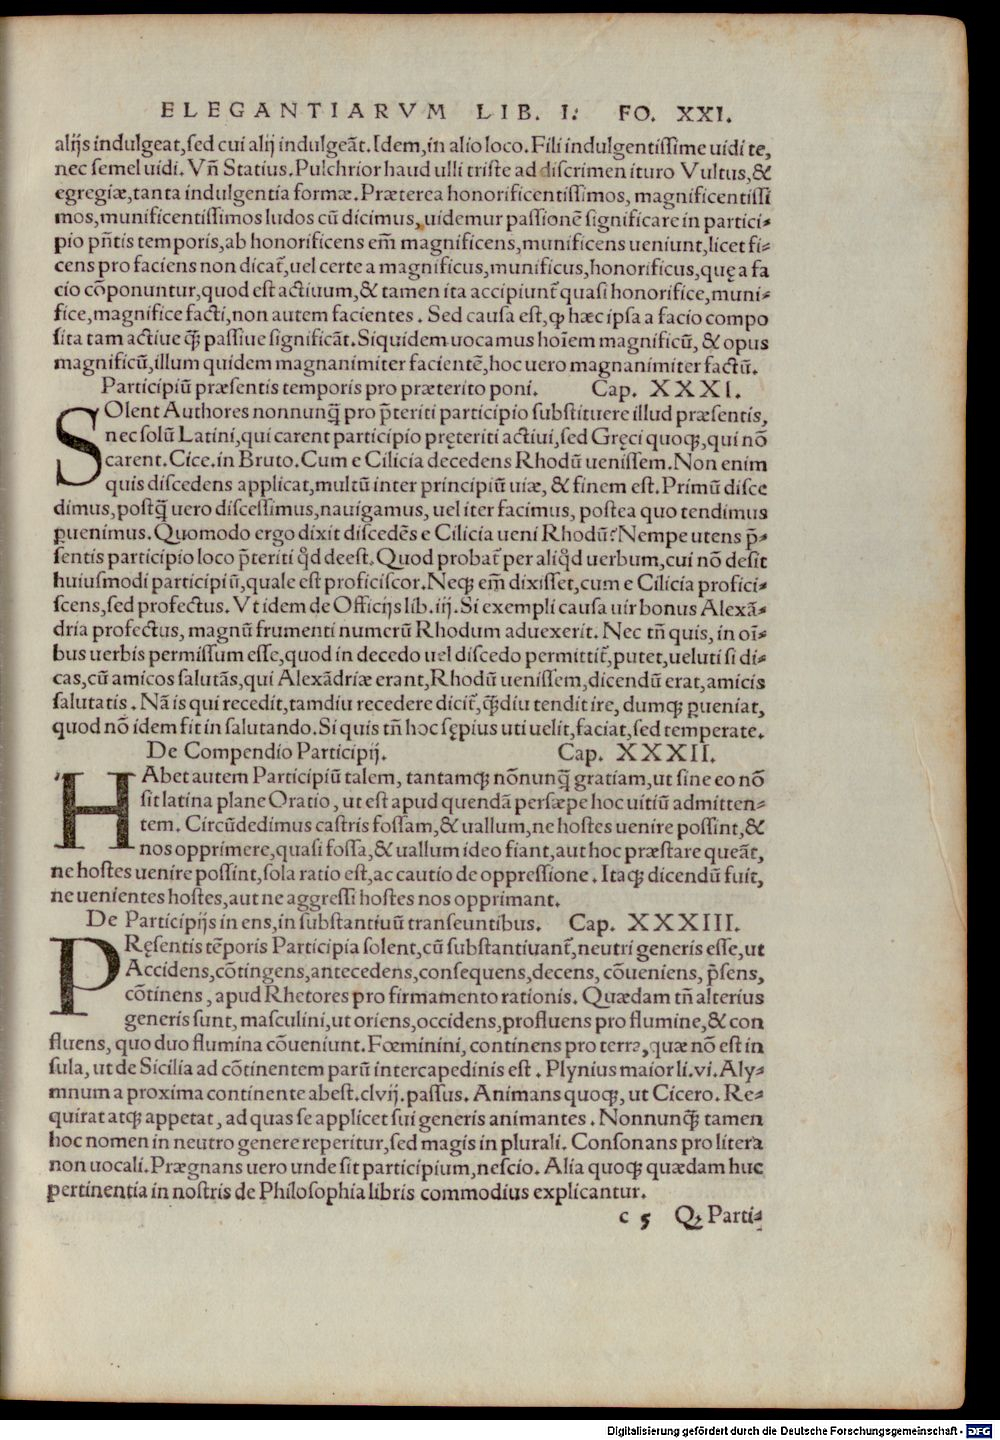 ELEGANTIARVM LIB. I. FO. XXI.
alijs indulgeat, sed cui alij indulgeãt. Idem, in alio loco. Fili indulgentissime uidi te,
nec semel uidi. Vñ Statius. Pulchrior haud ulli triste ad discrimen ituro Vultus, &
egregiæ, tanta indulgentia formæ. Præterea honorificentissimos, magnificentissi
mos, munificentissimos ludos cũ dicimus, uidemur passionẽ significare in partici-
pio pñtis temporis, ab honorificens em̃ magnificens, munificens ueniunt, licet fi-
cens pro faciens non dicat̃, uel certe a magnificus, munificus, honorificus, quę a fa
cio cõponuntur, quod est actiuum, & tamen ita accipiunt̃ quasi honorifice, muni-
fice, magnifice facti, non autem facientes. Sed causa est, ꝙ hæc ipsa a facio compo
sita tam actiue q̃ꝫ passiue significãt. Siquidem uocamus hoĩem magnificũ, & opus
magnificũ, illum quidem magnanimiter facientẽ, hoc uero magnanimiter factũ.
Participiũ præsentis temporis pro præterito poni. Cap. XXXI.
SOlent Authores nonnunq̃ pro p̃teriti participio substituere illud præsentis,
nec solũ Latini, qui carent participio pręteriti actiui, sed Gręci quoqꝫ, qui nõ
carent. Cice. in Bruto. Cum e Cilicia decedens Rhodũ uenissem. Non enim
quis discedens applicat, multũ inter principiũ uiæ, & finem est. Primũ disce
dimus, postq̃ uero discessimus, nauigamus, uel iter facimus, postea quo tendimus
ꝑuenimus. Quomodo ergo dixit discedẽs e Cilicia ueni Rhodũ? Nempe utens p̃-
sentis participio loco p̃teriti qd̃ deest. Quod probat̃ per aliqd̃ uerbum, cui nõ desit
huiusmodi participiũ, quale est proficiscor. Neqꝫ em̃ dixisset, cum e Cilicia profici-
scens, sed profectus. Vt idem de Officijs lib. iij. Si exempli causa uir bonus Alexã-
dria profectus, magnũ frumenti numerũ Rhodum aduexerit. Nec tñ quis, in oĩ-
bus uerbis permissum esse, quod in decedo uel discedo permittit̃, putet, ueluti si di-
cas, cũ amicos salutãs, qui Alexãdriæ erant, Rhodũ uenissem, dicendũ erat, amicis
salutatis. Nã is qui recedit, tamdiu recedere dicit̃, q̃ꝫdiu tendit ire, dumqꝫ ꝑueniat,
quod nõ idem fit in salutando. Si quis tñ hoc sępius uti uelit, faciat, sed temperate.
De Compendio Participij. Cap. XXXII.
HAbet autem Participiũ talem, tantamqꝫ nõnunq̃ gratiam, ut sine eo nõ
sit latina plane Oratio, ut est apud quendã persæpe hoc uitiũ admitten-
tem. Circũdedimus castris fossam, & uallum, ne hostes uenire possint, &
nos opprimere, quasi fossa, & uallum ideo fiant, aut hoc præstare queãt,
ne hostes uenire possint, sola ratio est, ac cautio de oppressione. Itaqꝫ dicendũ fuit,
ne uenientes hostes, aut ne aggressi hostes nos opprimant.
De Participijs in ens, in substantiuũ transeuntibus. Cap. XXXIII.
PRęsentis tẽporis Participia solent, cũ substantiuant̃, neutri generis esse, ut
Accidens, cõtingens, antecedens, consequens, decens, cõueniens, p̃sens,
cõtinens, apud Rhetores pro firmamento rationis. Quædam tñ alterius
generis sunt, masculini, ut oriens, occidens, profluens pro flumine, & con
fluens, quo duo flumina cõueniunt. Fœminini, continens pro terra, quæ nõ est in
sula, ut de Sicilia ad cõtinentem parũ intercapedinis est. Plynius maior li. vi. Aly-
mnum a proxima continente abest. clvij. passus. Animans quoqꝫ, ut Cicero. Re-
quirat atqꝫ appetat, ad quas se applicet sui generis animantes. Nonnunq̃ꝫ tamen
hoc nomen in neutro genere reperitur, sed magis in plurali. Consonans pro litera
non uocali. Prægnans uero unde sit participium, nescio. Alia quoqꝫ quædam huc
pertinentia in nostris de Philosophia libris commodius explicantur.
c 5 Qꝫ Parti-
Digitalisierung gefördert durch die Deutsche Forschungsgemeinschaft - DFG